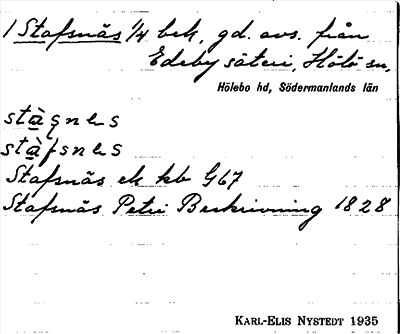 1 Stafsnäs 1/4 bek. gd. avs. från
Edeby säteri, Hölö sn,
Hölebo hd, Södermanlands län
stàgnes
stàfsnes
Stafsnäs ek kb G67
Stafsnäs Petri Beskrivning 1828
KARL-ELIS NYSTEDT 1935